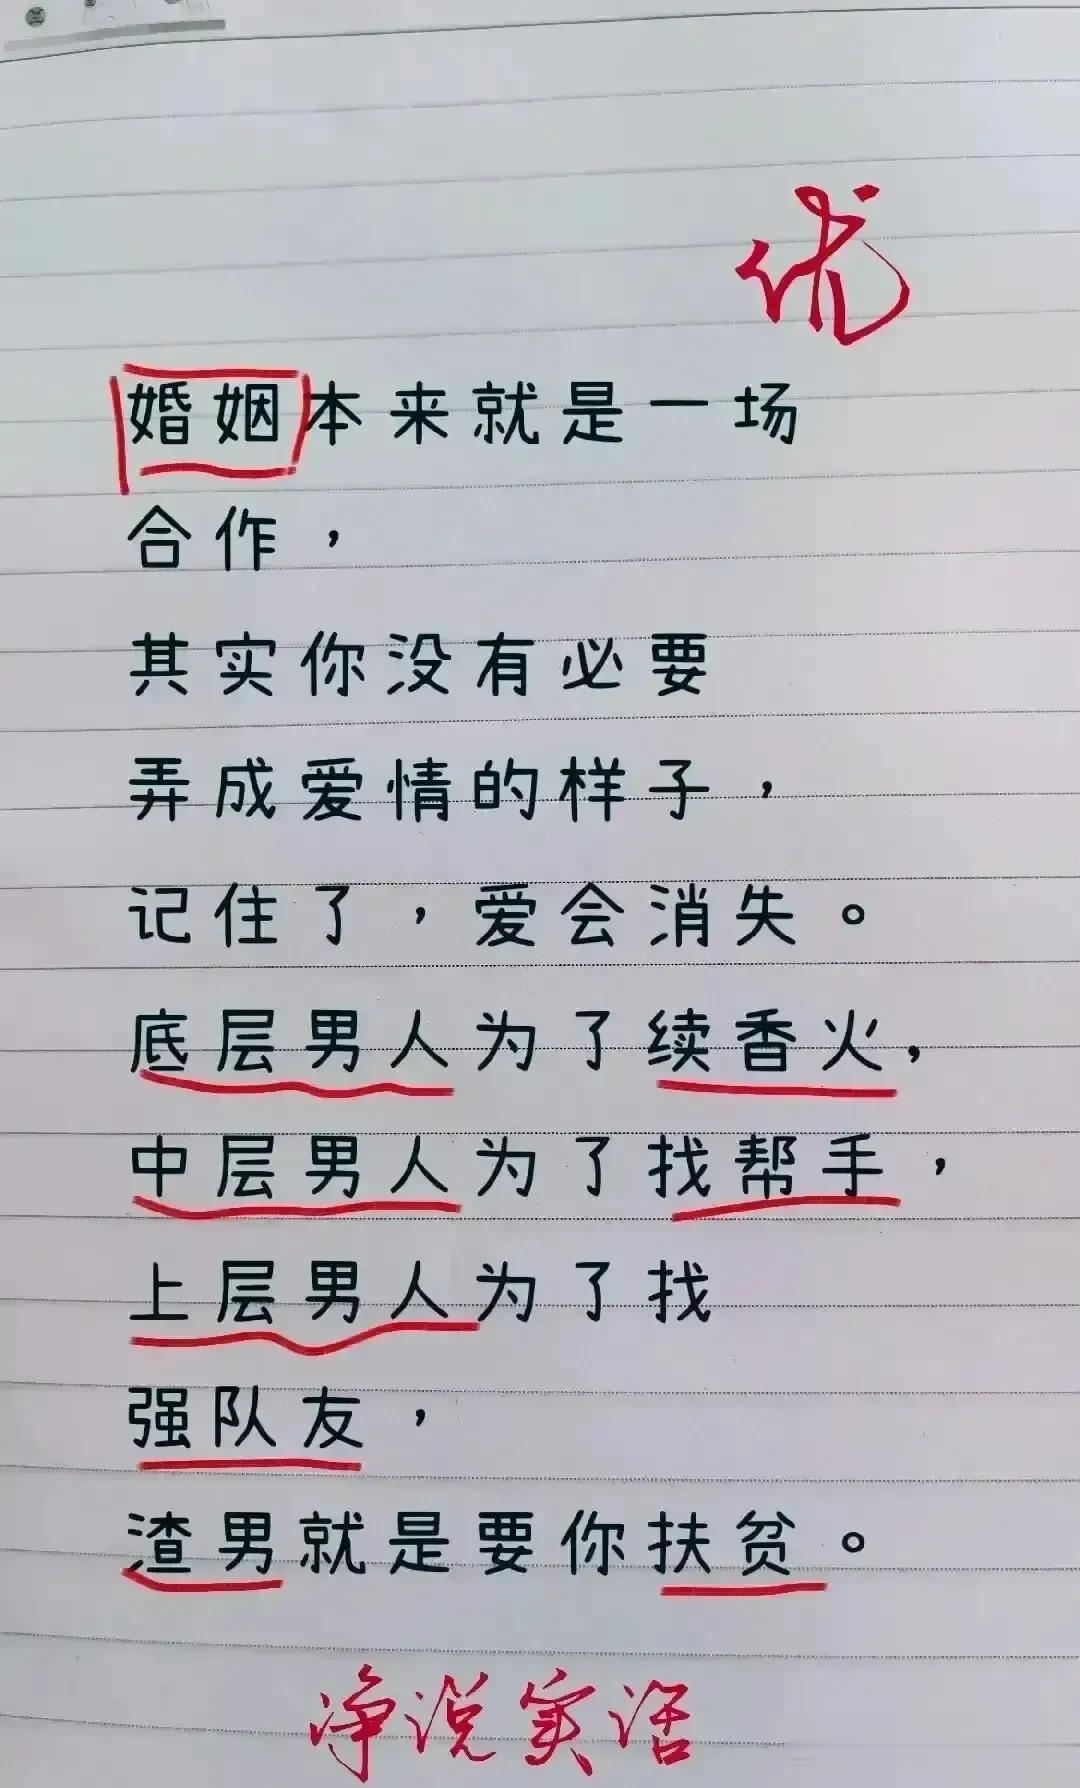 优
婚姻本来就是一场
合作，
其实你没有必要
弄成爱情的样子，
记住了，爱会消失。
底层男人为了续香火，
中层男人为了找帮手，
上层男人为了找
强队友，
渣男就是要你扶贫。
净说实话